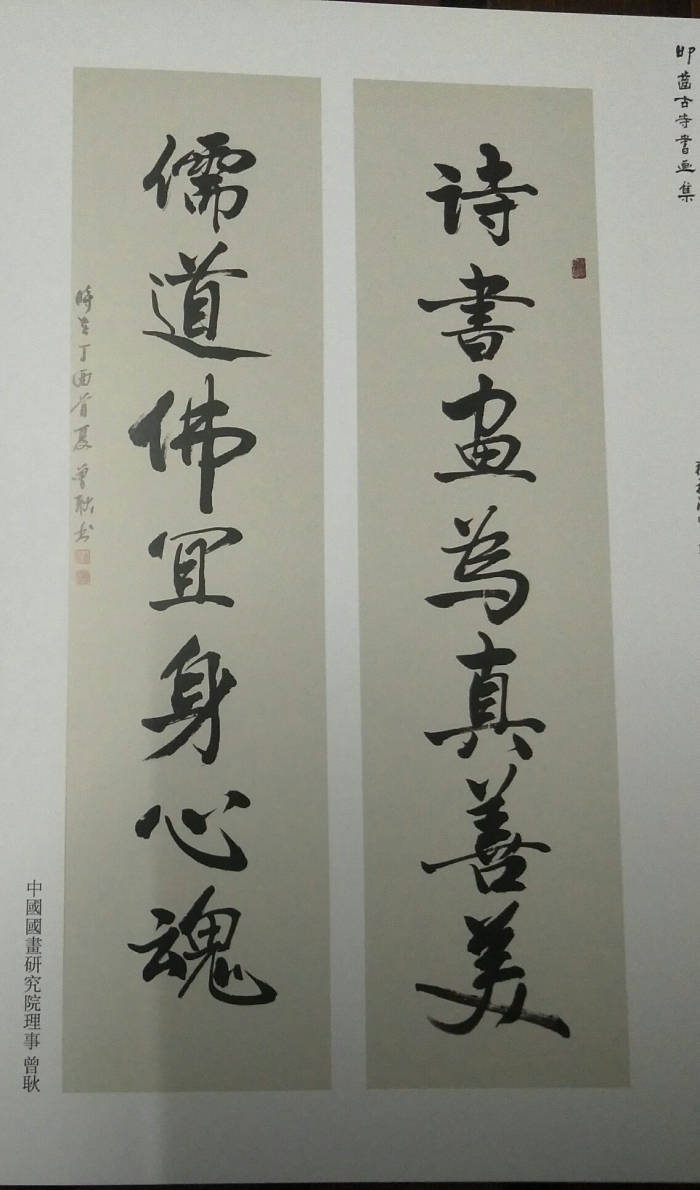 印薔古寺書画集
诗書画為真善美
儒道佛宜身心魂
時在丁酉首夏 曾耿书
中國國畫研究院理事 曾耿